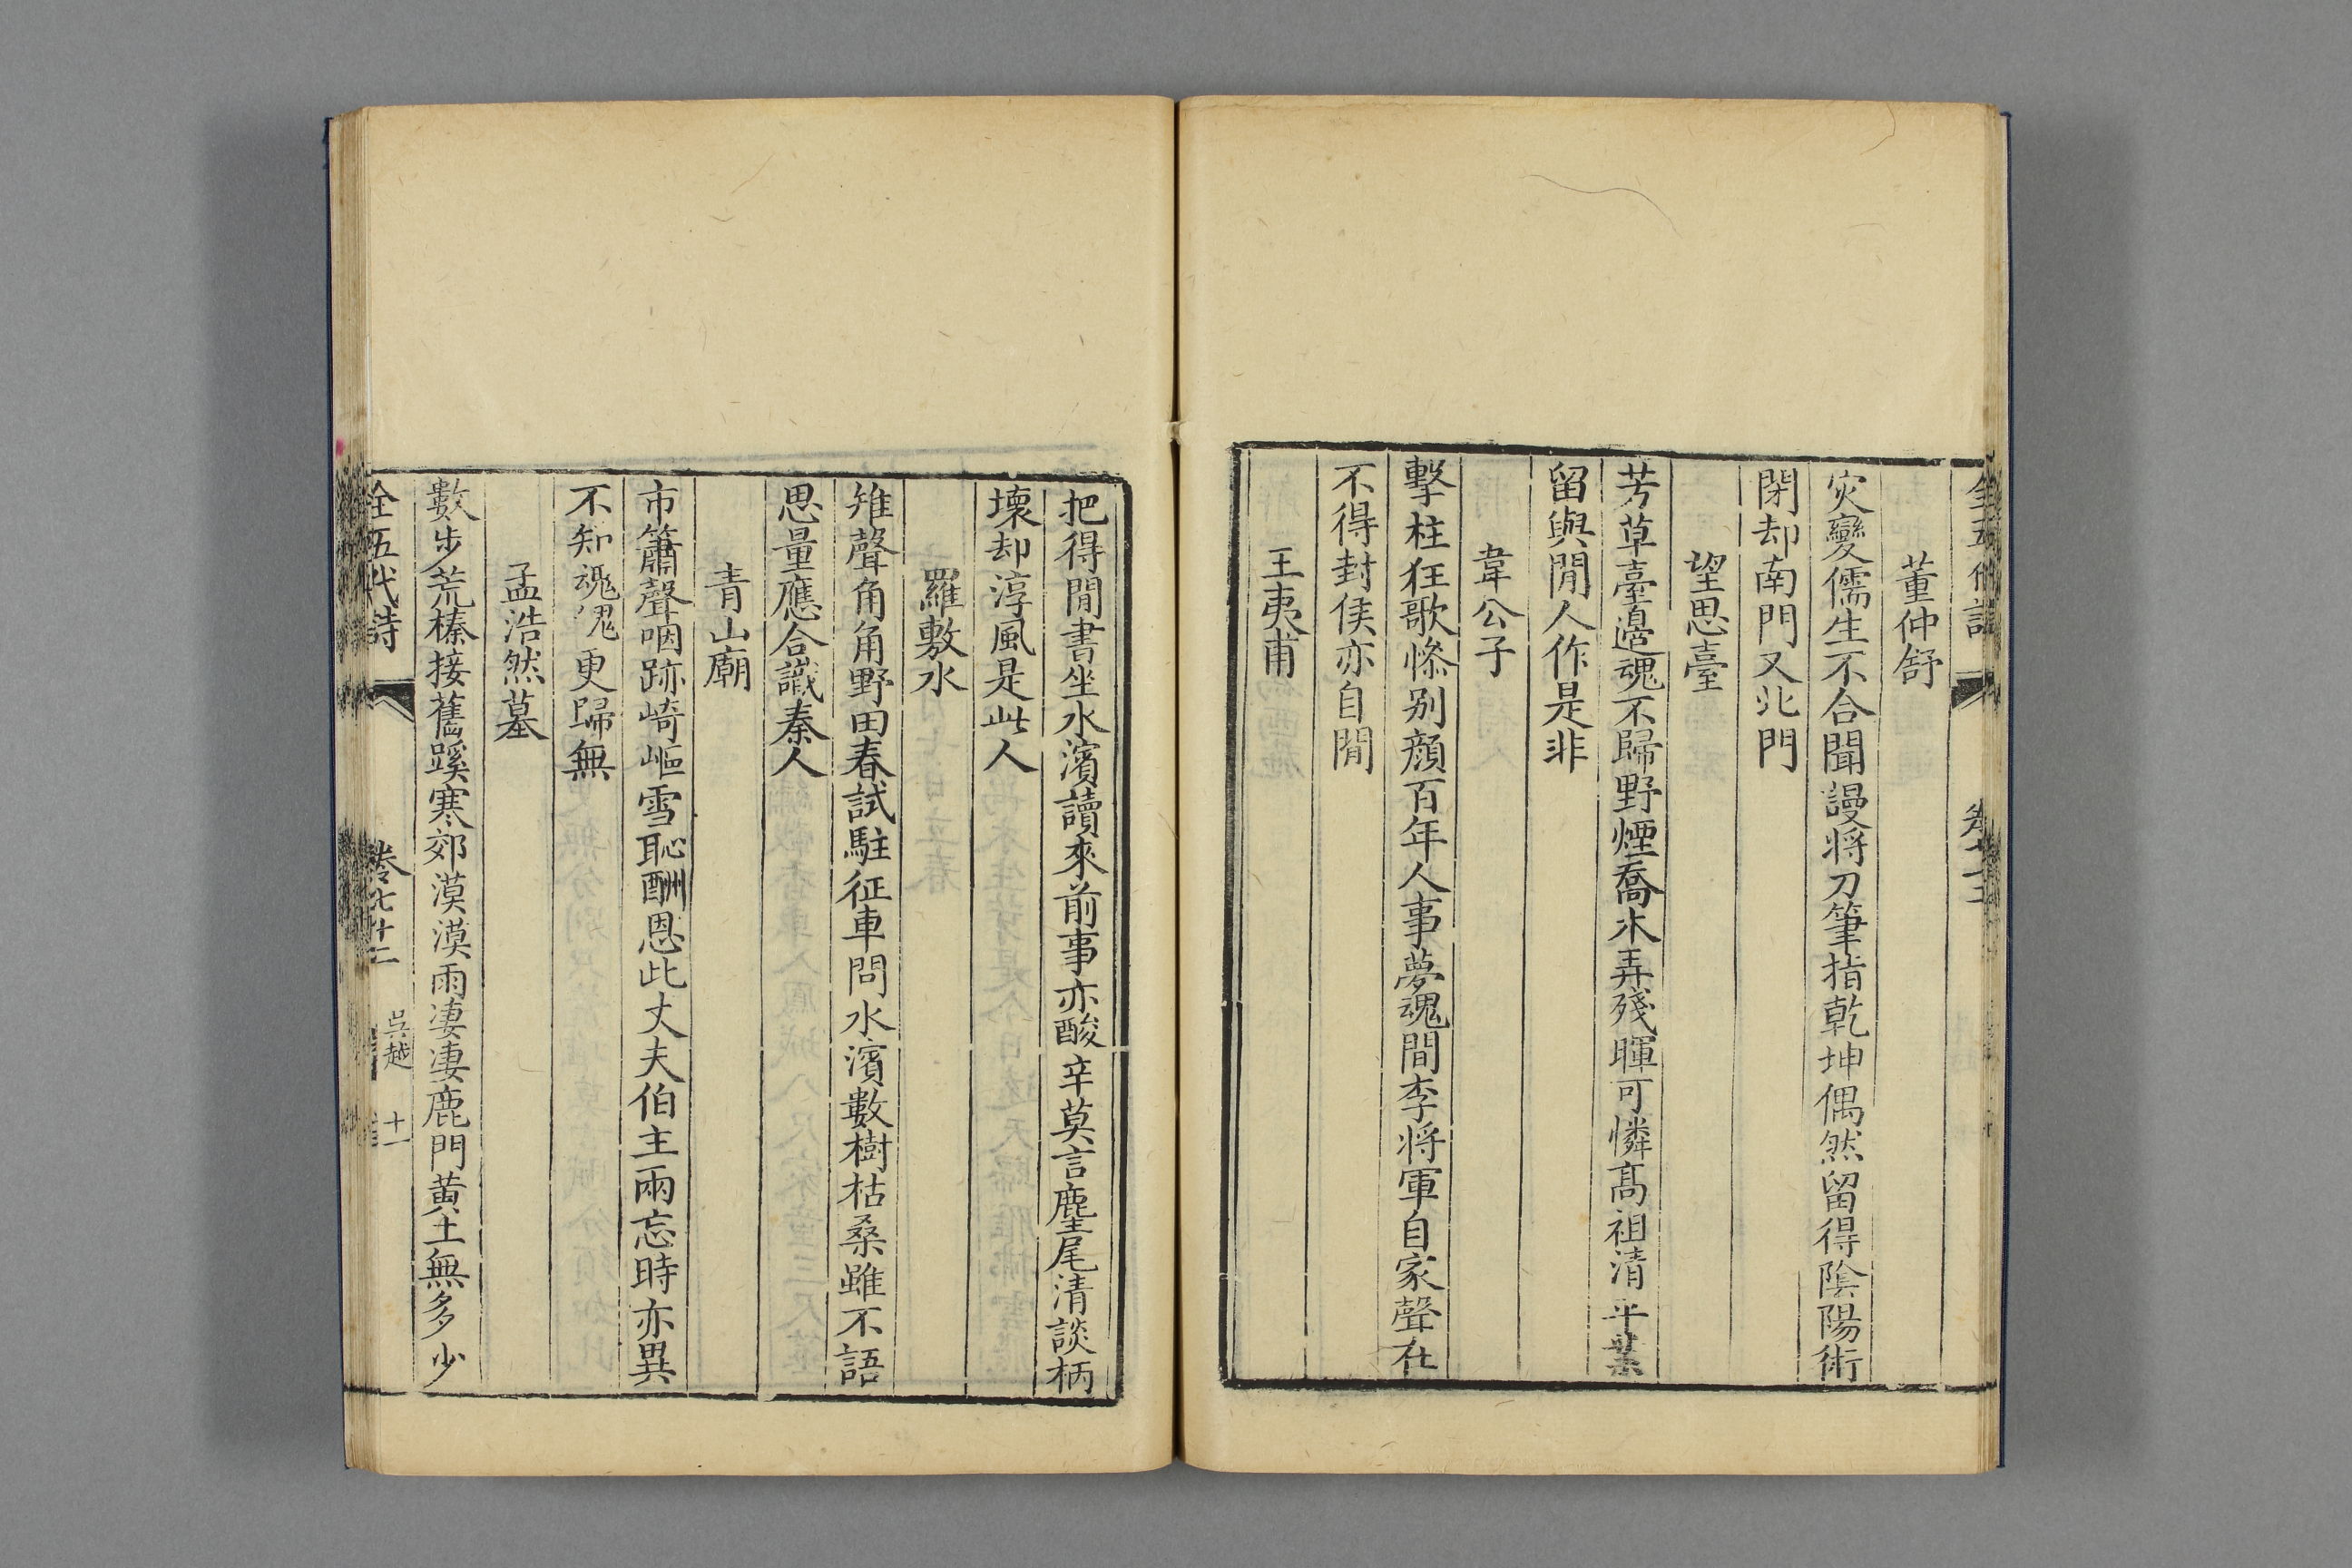 董仲舒
灾變儒生不合聞謾将刀筆指乾坤偶然留得陰陽術
閉却南門又北門
望思臺
芳草臺邉魂不歸野煙喬木弄殘暉可憐髙祖清平業
留與閒人作是非
韋公子
擊柱狂歌慘别顔百年人事夢魂間李将軍自家聲在
不得封侯亦自閒
王夷甫
把得閒書坐水濱讀來前事亦酸辛莫言麈尾清談柄
壊却淳風是此人
羅敷水
雉聲角角野田春試駐征車問水濱數樹枯桑雖不語
思量應合識秦人
青山廟
市簫聲咽跡崎嶇雪恥酬恩此丈夫伯主兩忘時亦異
不知魂魄更歸無
孟浩然墓
數步荒榛接舊蹊寒郊漠漠雨凄凄鹿門黄土無多少
全五代詩
卷七十二
吳越
十一